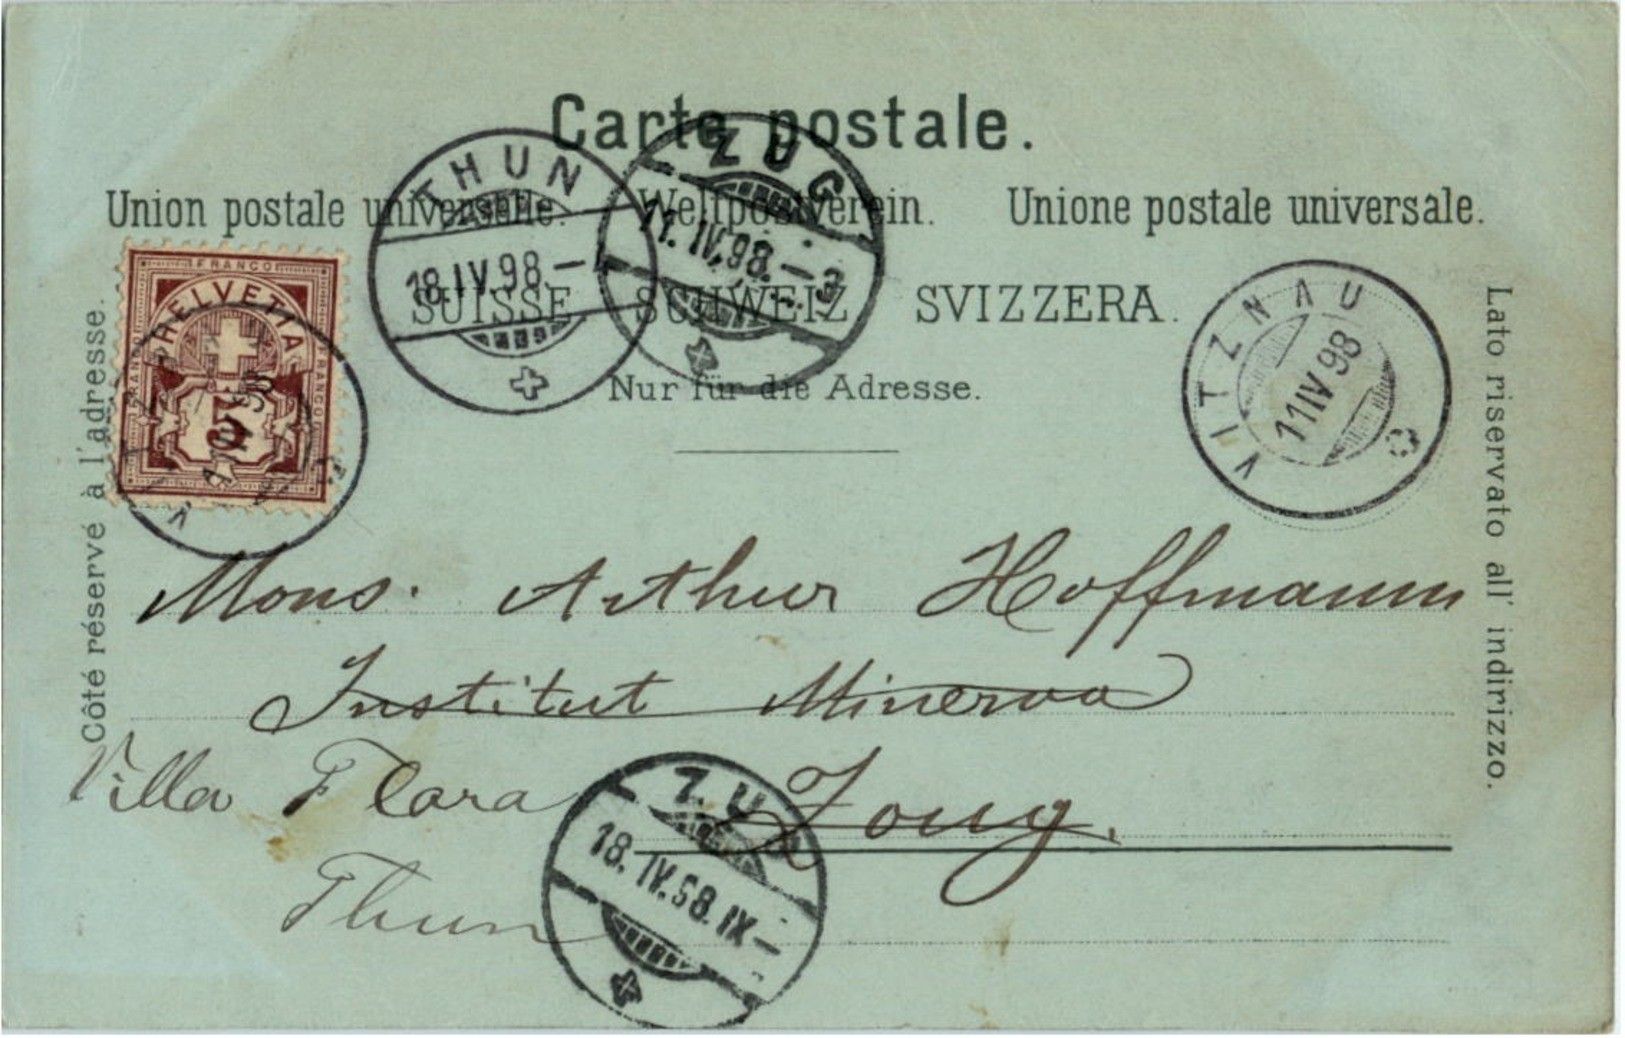 Carte postale.
Union postale universelle. Weltpostverein. Unione postale universale.
SUISSE SCHWEIZ SVIZZERA.
Nur für die Adresse.
Côté réservé à l'adresse.
Lato riservato all' indirizzo.
FRANCO
FRANCO
FRANCO
HELVETIA
5
THUN
18.IV.98.–
ZUG
11.IV.98.–3
VITZNAU
11 IV 98
Mons. Arthur Hoffmann
Institut Minerva
Zoug.
Villa Flora
Thun
ZUG
18.IV.98.IX–